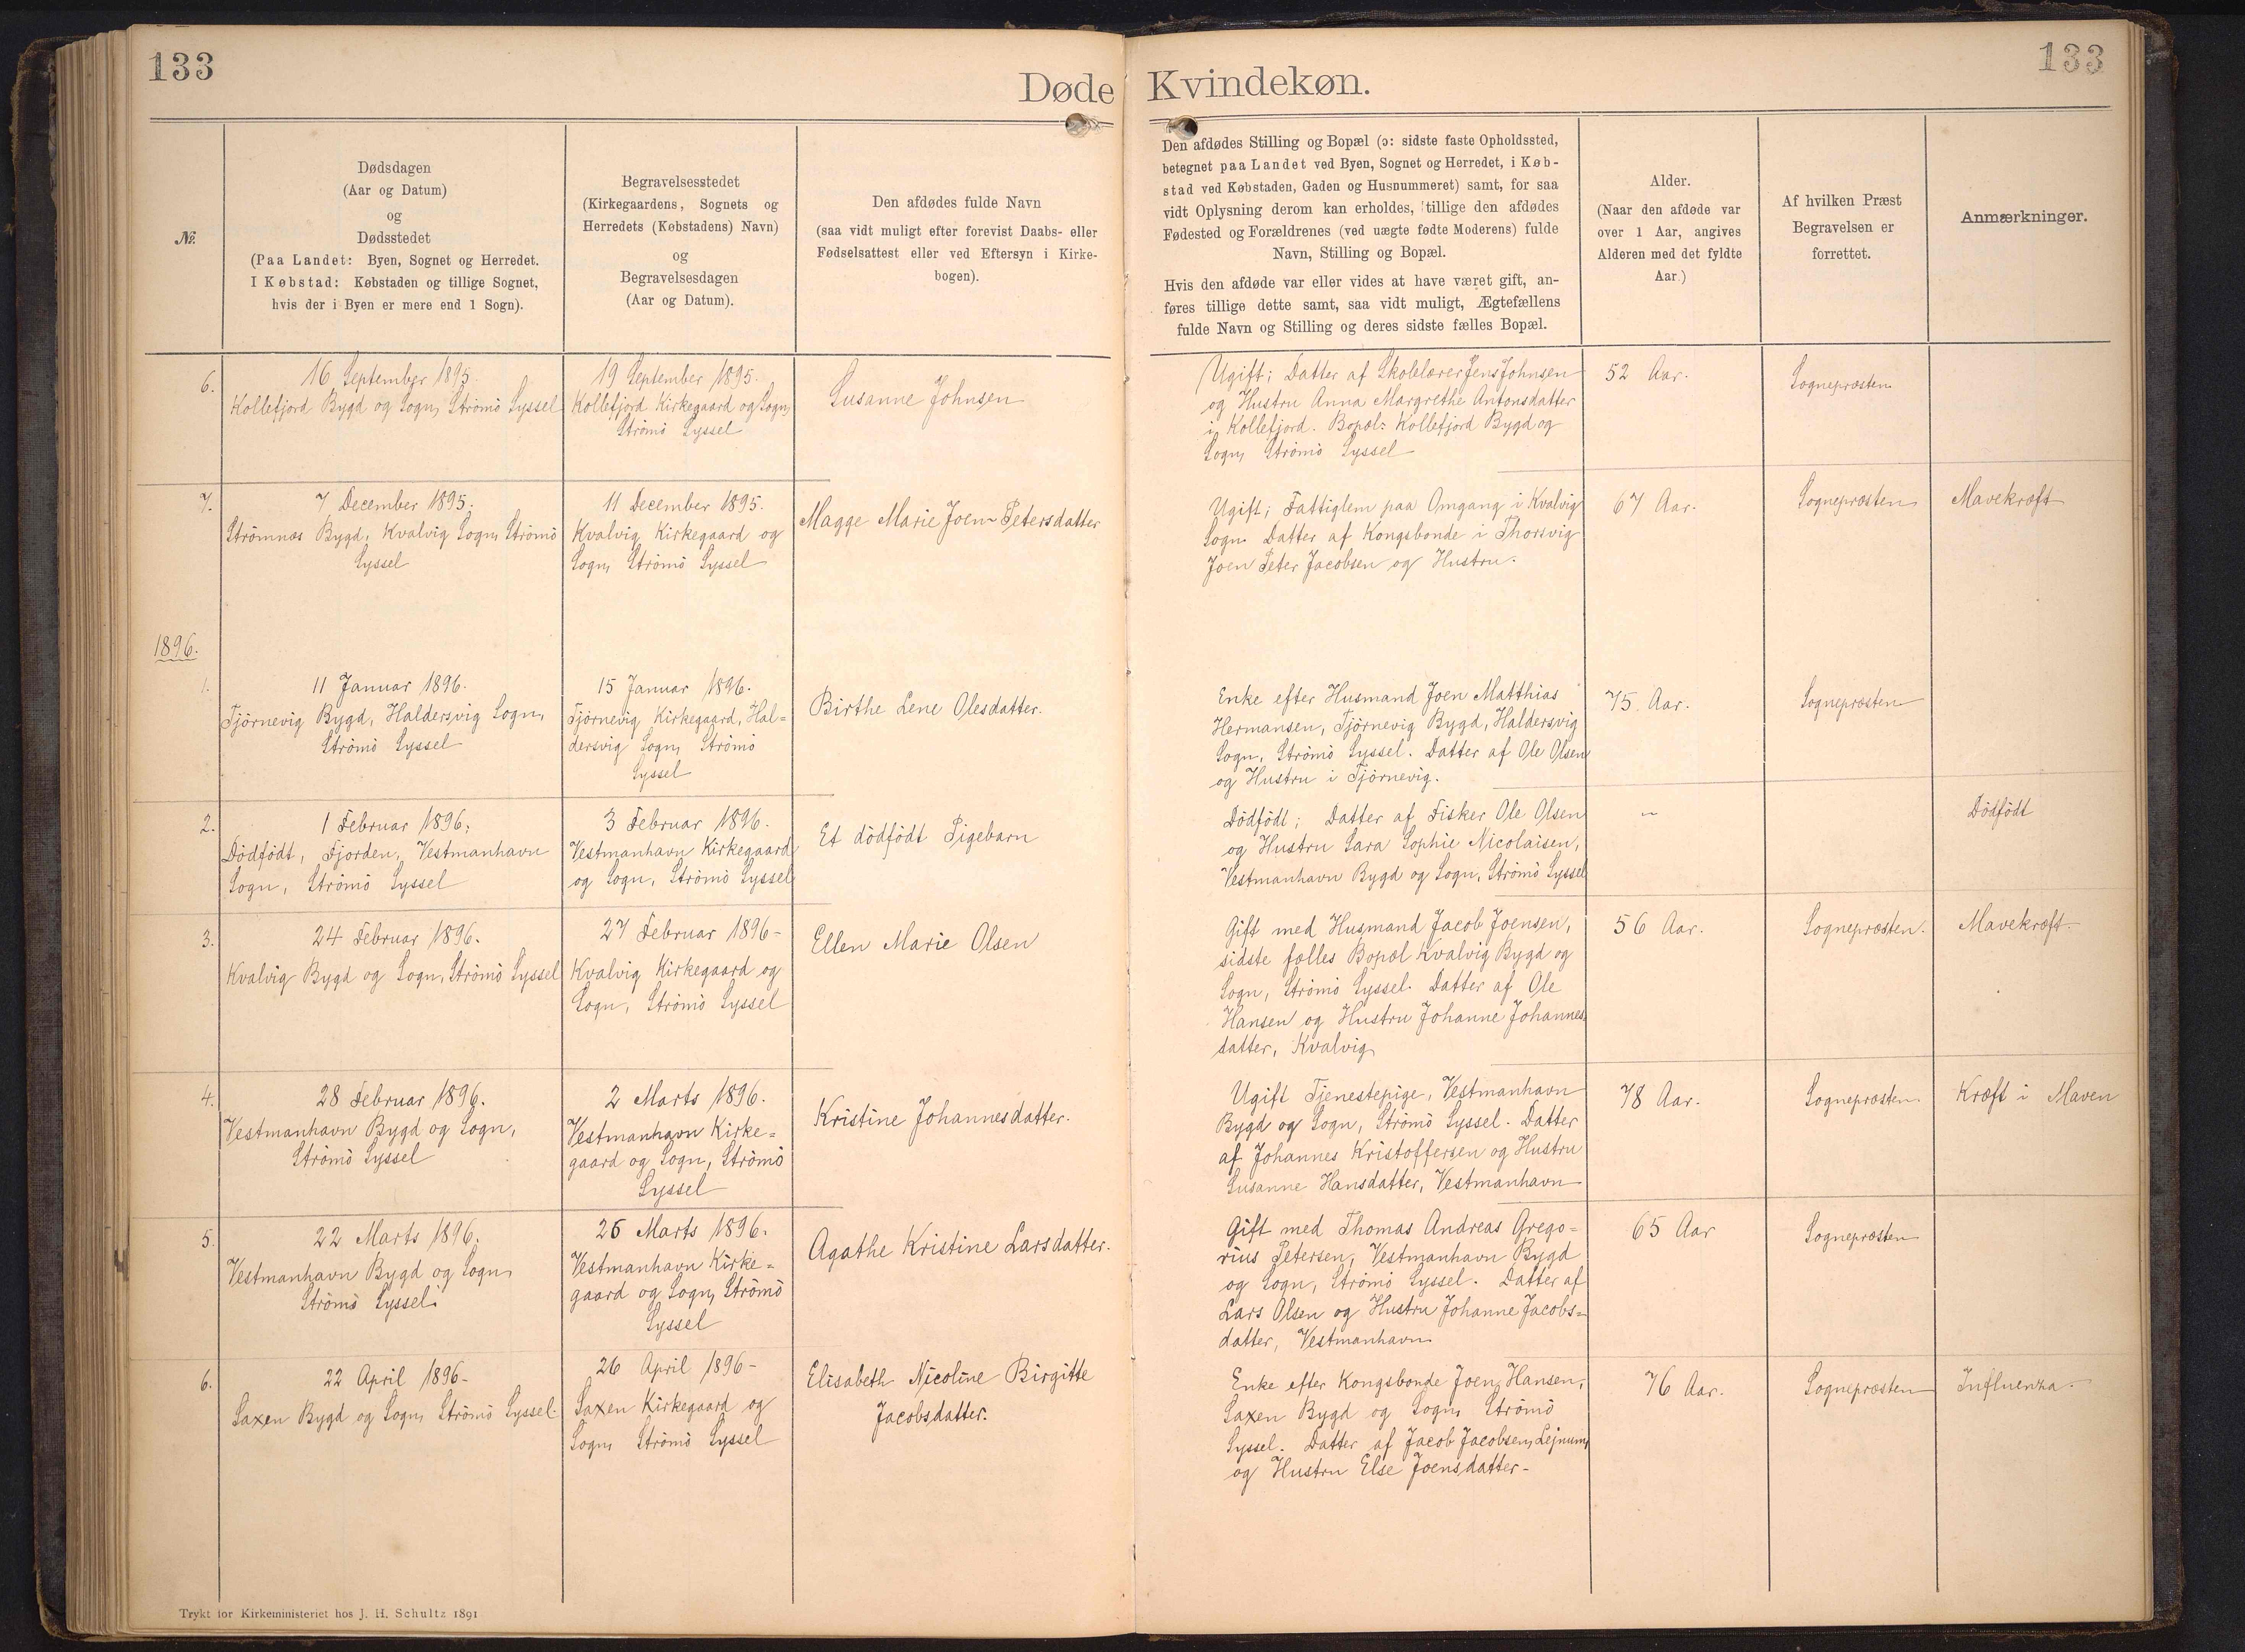 133
133
Døde Kvindekøn.
№.
Dødsdagen
(Aar og Datum)
og
Dødsstedet
(Paa Landet: Byen, Sognet og Herredet.
I Købstad: Købstaden og tillige Sognet,
hvis der i Byen er mere end 1 Sogn).
Begravelsesstedet
(Kirkegaardens, Sognets og
Herredets (Købstadens) Navn)
og
Begravelsesdagen
(Aar og Datum).
Den afdødes fulde Navn
(saa vidt muligt efter forevist Daabs- eller
Fødselsattest eller ved Eftersyn i Kirke-
bogen).
Den afdødes Stilling og Bopæl (ɔ: sidste faste Opholdssted,
betegnet paa Landet ved Byen, Sognet og Herredet, i Køb-
stad ved Købstaden, Gaden og Husnummeret) samt, for saa
vidt Oplysning derom kan erholdes, tillige den afdødes
Fødested og Forældrenes (ved uægte fødte Moderens) fulde
Navn, Stilling og Bopæl.
Hvis den afdøde var eller vides at have været gift, an-
føres tillige dette samt, saa vidt muligt, Ægtefællens
fulde Navn og Stilling og deres sidste fælles Bopæl.
Alder.
(Naar den afdøde var
over 1 Aar, angives
Alderen med det fyldte
Aar.)
Af hvilken Præst
Begravelsen er
forrettet.
Anmærkninger.
6.
16 September 1895.
Kollefjord Bygd og Sogn, Strömö Syssel
19 September 1895.
Kollefjord Kirkegaard og Sogn,
Strömö Syssel
Susanne Johnsen
Ugift; Datter af Skolelærer Jens Johnsen
og Hustru Anna Margrethe Antonsdatter
i Kollefjord. Bopæl: Kollefjord Bygd og
Sogn, Strömö Syssel
52 Aar.
Sognepræsten
7.
7 December 1895.
Strömnæs Bygd, Kvalvig Sogn, Strömö
Syssel
11 December 1895.
Kvalvig Kirkegaard og
Sogn, Strömö Syssel
Magge Marie Joen-Petersdatter
Ugift; Fattiglem paa Omgang i Kvalvig
Sogn. Datter af Kongsbonde i Thorsvig
Joen Peter Jacobsen og Hustru.
67 Aar.
Sognepræsten
Mavekræft
1896.
1.
11 Januar 1896.
Tjörnevig Bygd, Haldersvig Sogn,
Strömö Syssel
15 Januar 1896.
Tjörnevig Kirkegaard, Hal=
dersvig Sogn, Strömö
Syssel
Birthe Lene Olesdatter.
Enke efter Husmand Joen Matthias
Hermansen, Tjörnevig Bygd, Haldersvig
Sogn, Strömö Syssel. Datter af Ole Olsen
og Hustru i Tjörnevig.
75 Aar.
Sognepræsten
2.
1 Februar 1896.
Dödfödt, Fjorden, Vestmanhavn
Sogn, Strömö Syssel
3 Februar 1896.
Vestmanhavn Kirkegaard
og Sogn, Strömö Syssel
Et dödfödt Pigebarn
Dödfödt; Datter af Fisker Ole Olsen
og Hustru Sara Sophie Nicolaisen,
Vestmanhavn Bygd og Sogn, Strömö Syssel
–
Dödfödt
3.
24 Februar 1896.
Kvalvig Bygd og Sogn, Strömö Syssel
27 Februar 1896-
Kvalvig Kirkegaard og
Sogn, Strömö Syssel
Ellen Marie Olsen
Gift med Husmand Jacob Joensen,
sidste fælles Bopæl Kvalvig Bygd og
Sogn, Strömö Syssel. Datter af Ole
Hansen og Hustru Johanne Johannes=
datter, Kvalvig
56 Aar.
Sognepræsten.
Mavekræft.
4.
28 Februar 1896.
Vestmanhavn Bygd og Sogn,
Strömö Syssel
2 Marts 1896.
Vestmanhavn Kirke=
gaard og Sogn, Strömö
Syssel
Kristine Johannesdatter.
Ugift Tjenestepige, Vestmanhavn
Bygd og Sogn, Strömö Syssel. Datter
af Johannes Kristoffersen og Hustru
Susanne Hansdatter, Vestmanhavn
78 Aar.
Sognepræsten.
Kræft i Maven
5.
22 Marts 1896.
Vestmanhavn Bygd og Sogn,
Strömö Syssel.
26 Marts 1896.
Vestmanhavn Kirke=
gaard og Sogn, Strömö
Syssel
Agathe Kristine Larsdatter.
Gift med Thomas Andreas Grego=
rius Petersen, Vestmanhavn Bygd
og Sogn, Strömö Syssel. Datter af
Lars Olsen og Hustru Johanne Jacobs=
datter, Vestmanhavn
65 Aar
Sognepræsten
6.
22 April 1896-
Saxen Bygd og Sogn, Strömö Syssel
26 April 1896-
Saxen Kirkegaard og
Sogn, Strömö Syssel
Elisabeth Nicoline Birgitte
Jacobsdatter.
Enke efter Kongsbonde Joen Hansen,
Saxen Bygd og Sogn, Strömö
Syssel. Datter af Jacob Jacobsen, Lejnum,
og Hustru Else Joensdatter-
76 Aar.
Sognepræsten
Influenza.
Trykt for Kirkeministeriet hos J. H. Schultz 1891